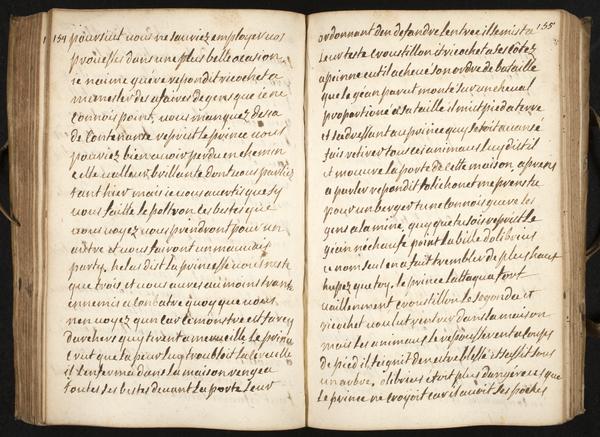 154
poursuit vous ne sauriez employer vos
prouesses dans une plus belle ocasion
je naime guere repondit ricochet a
me mesler des afaires des gens que je ne
connois point, vous manquez desia
de contenance reprit le prince vous
pouriez bien avoir perdu en chemin
cette valleur brillante dont vous parliez
tant hier mais je vous avertis que sy
vous faitte le poltron les bestes que
vous voyez vous prendront pour un
autre et vous feront un mauvais
party. helas dit la princesse vous neste
que trois, et vous avez au moins trante
ennemis a conbatre quoy que vous
nen voyez qun car ce monstre est farcy
darchers quy tirent a merveille le prince
crut que la peur luy troubloit la cervelle
il lenferma dans la maison rengea
toutes ses bestes devant la porte leur
155
ordonnant den defandre lentree il se mist a
leur teste croustillon et ricochet a ses côtez
a peinne eut il achevé son ordre de bataille
que le géan parut monté sur un cheval
proportioné a sa taille il mit pied a terre
et sadressant au prince quy sestoit avancé
fais retirer tous ces animaux luy dit il
et mouvre la porte de cette maison, aprens
a parler repondit folichon et me prens tu
pour un berger tu ne connois guere les
gens a la mine, quy que tu sois reprit le
géan nechaufe point la bille dolibrius
ce nom seul en a fait trembler de plus haut
hupez que toy, le prince lattaqua fort
vaillemment croustillon le segonda et
ricochet voulut rentrer dans la maison
mais les animaux le repousserent a coups
de pied il feignit den estre blessé et sassit sous
un arbre. olibrius étoit plus dangereux que
le prince ne croyoit car il avoit ses poches